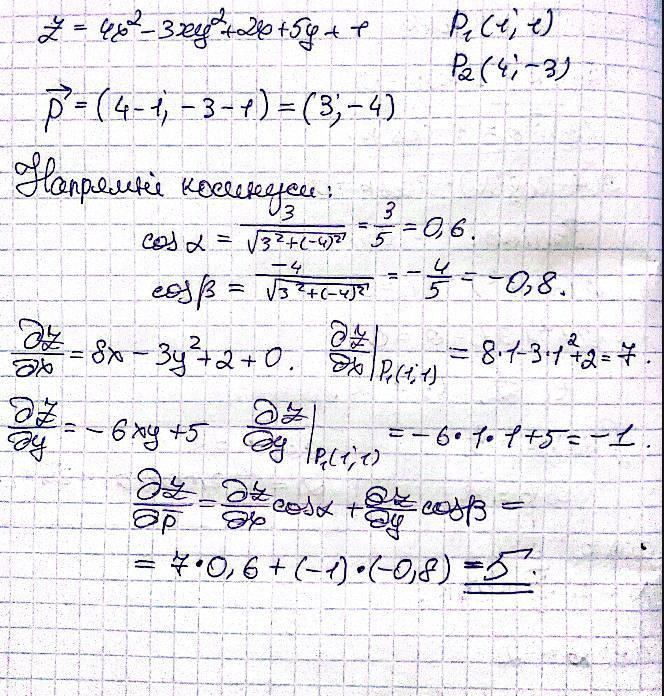 z = 4x² - 3xy² + 2x + 5y + 1 P₁(1; 1)
P₂(4; -3)
p⃗ = (4-1; -3-1) = (3; -4)
Напрямні косинуси:
cos α = 3/√(3²+(-4)²) = 3/5 = 0,6.
cos β = -4/√(3²+(-4)²) = -4/5 = -0,8.
∂z/∂x = 8x - 3y² + 2 + 0. ∂z/∂x|P₁(1;1) = 8·1-3·1²+2 = 7.
∂z/∂y = -6xy + 5 ∂z/∂y|P₁(1;1) = -6·1·1+5 = -1.
∂z/∂p = ∂z/∂x cos α + ∂z/∂y cos β =
= 7·0,6 + (-1)·(-0,8) = 5.